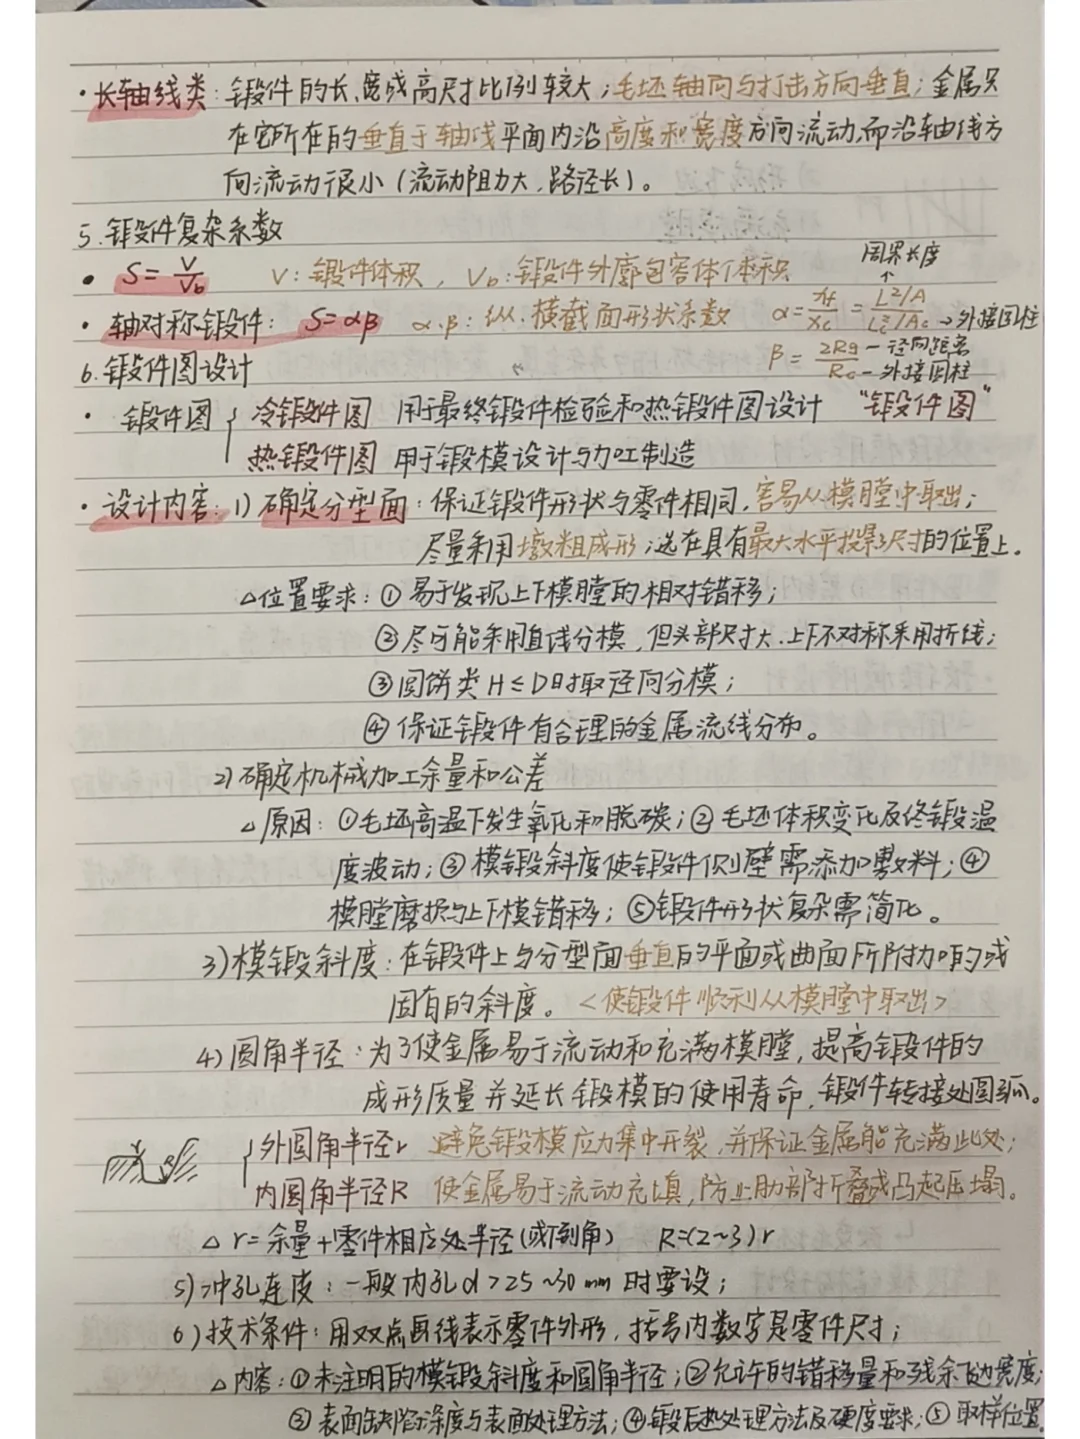 ·长轴线类：锻件的长、宽或高尺寸比例较大；毛坯轴向与打击方向垂直；金属只
在它所在的垂直于轴线平面内沿高度和宽度方向流动,而沿轴线方
向流动很小（流动阻力大、路径长）。
5.锻件复杂系数
· S=V/V_b V：锻件体积，V_b：锻件外廓包容体体积
周界长度
↑
·轴对称锻件：S=αβ α、β：纵、横截面形状系数 α=X_f/X_c=(L²/A)/(L_c²/A_c)→外接圆柱
β=2Rg/Rc —径向距离 —外接圆柱
6.锻件图设计
·锻件图{冷锻件图 用于最终锻件检验和热锻件图设计 "锻件图"
热锻件图 用于锻模设计与加工制造
·设计内容：1)确定分型面：保证锻件形状与零件相同，容易从模膛中取出；
尽量利用墩粗成形；选在具有最大水平投影尺寸的位置上。
△位置要求：①易于发现上下模膛的相对错移；
②尽可能采用直线分模，但头部尺寸大、上下不对称采用折线；
③圆饼类H≤D时取径向分模；
④保证锻件有合理的金属流线分布。
2)确定机械加工余量和公差
△原因：①毛坯高温下发生氧化和脱碳；②毛坯体积变化及终锻温
度波动；③模锻斜度使锻件侧壁需添加敷料；④
模膛磨损与上下模错移；⑤锻件形状复杂需简化。
3)模锻斜度：在锻件上与分型面垂直的平面或曲面所附加的或
固有的斜度。<使锻件顺利从模膛中取出>
4)圆角半径：为了使金属易于流动和充满模膛，提高锻件的
成形质量并延长锻模的使用寿命，锻件转接处圆弧。
{外圆角半径r 避免锻模应力集中开裂，并保证金属能充满此处；
内圆角半径R 使金属易于流动充填，防止肋部折叠或凸起压塌。
△ r=余量+零件相应处半径(或倒角) R=(2~3)r
5)冲孔连皮：一般内孔d>25~30mm时要设；
6)技术条件：用双点画线表示零件外形，括号内数字是零件尺寸；
△内容：①未注明的模锻斜度和圆角半径；②允许的错移量和残余飞边宽度；
③表面缺陷深度与表面处理方法；④锻后热处理方法及硬度要求；⑤取样位置